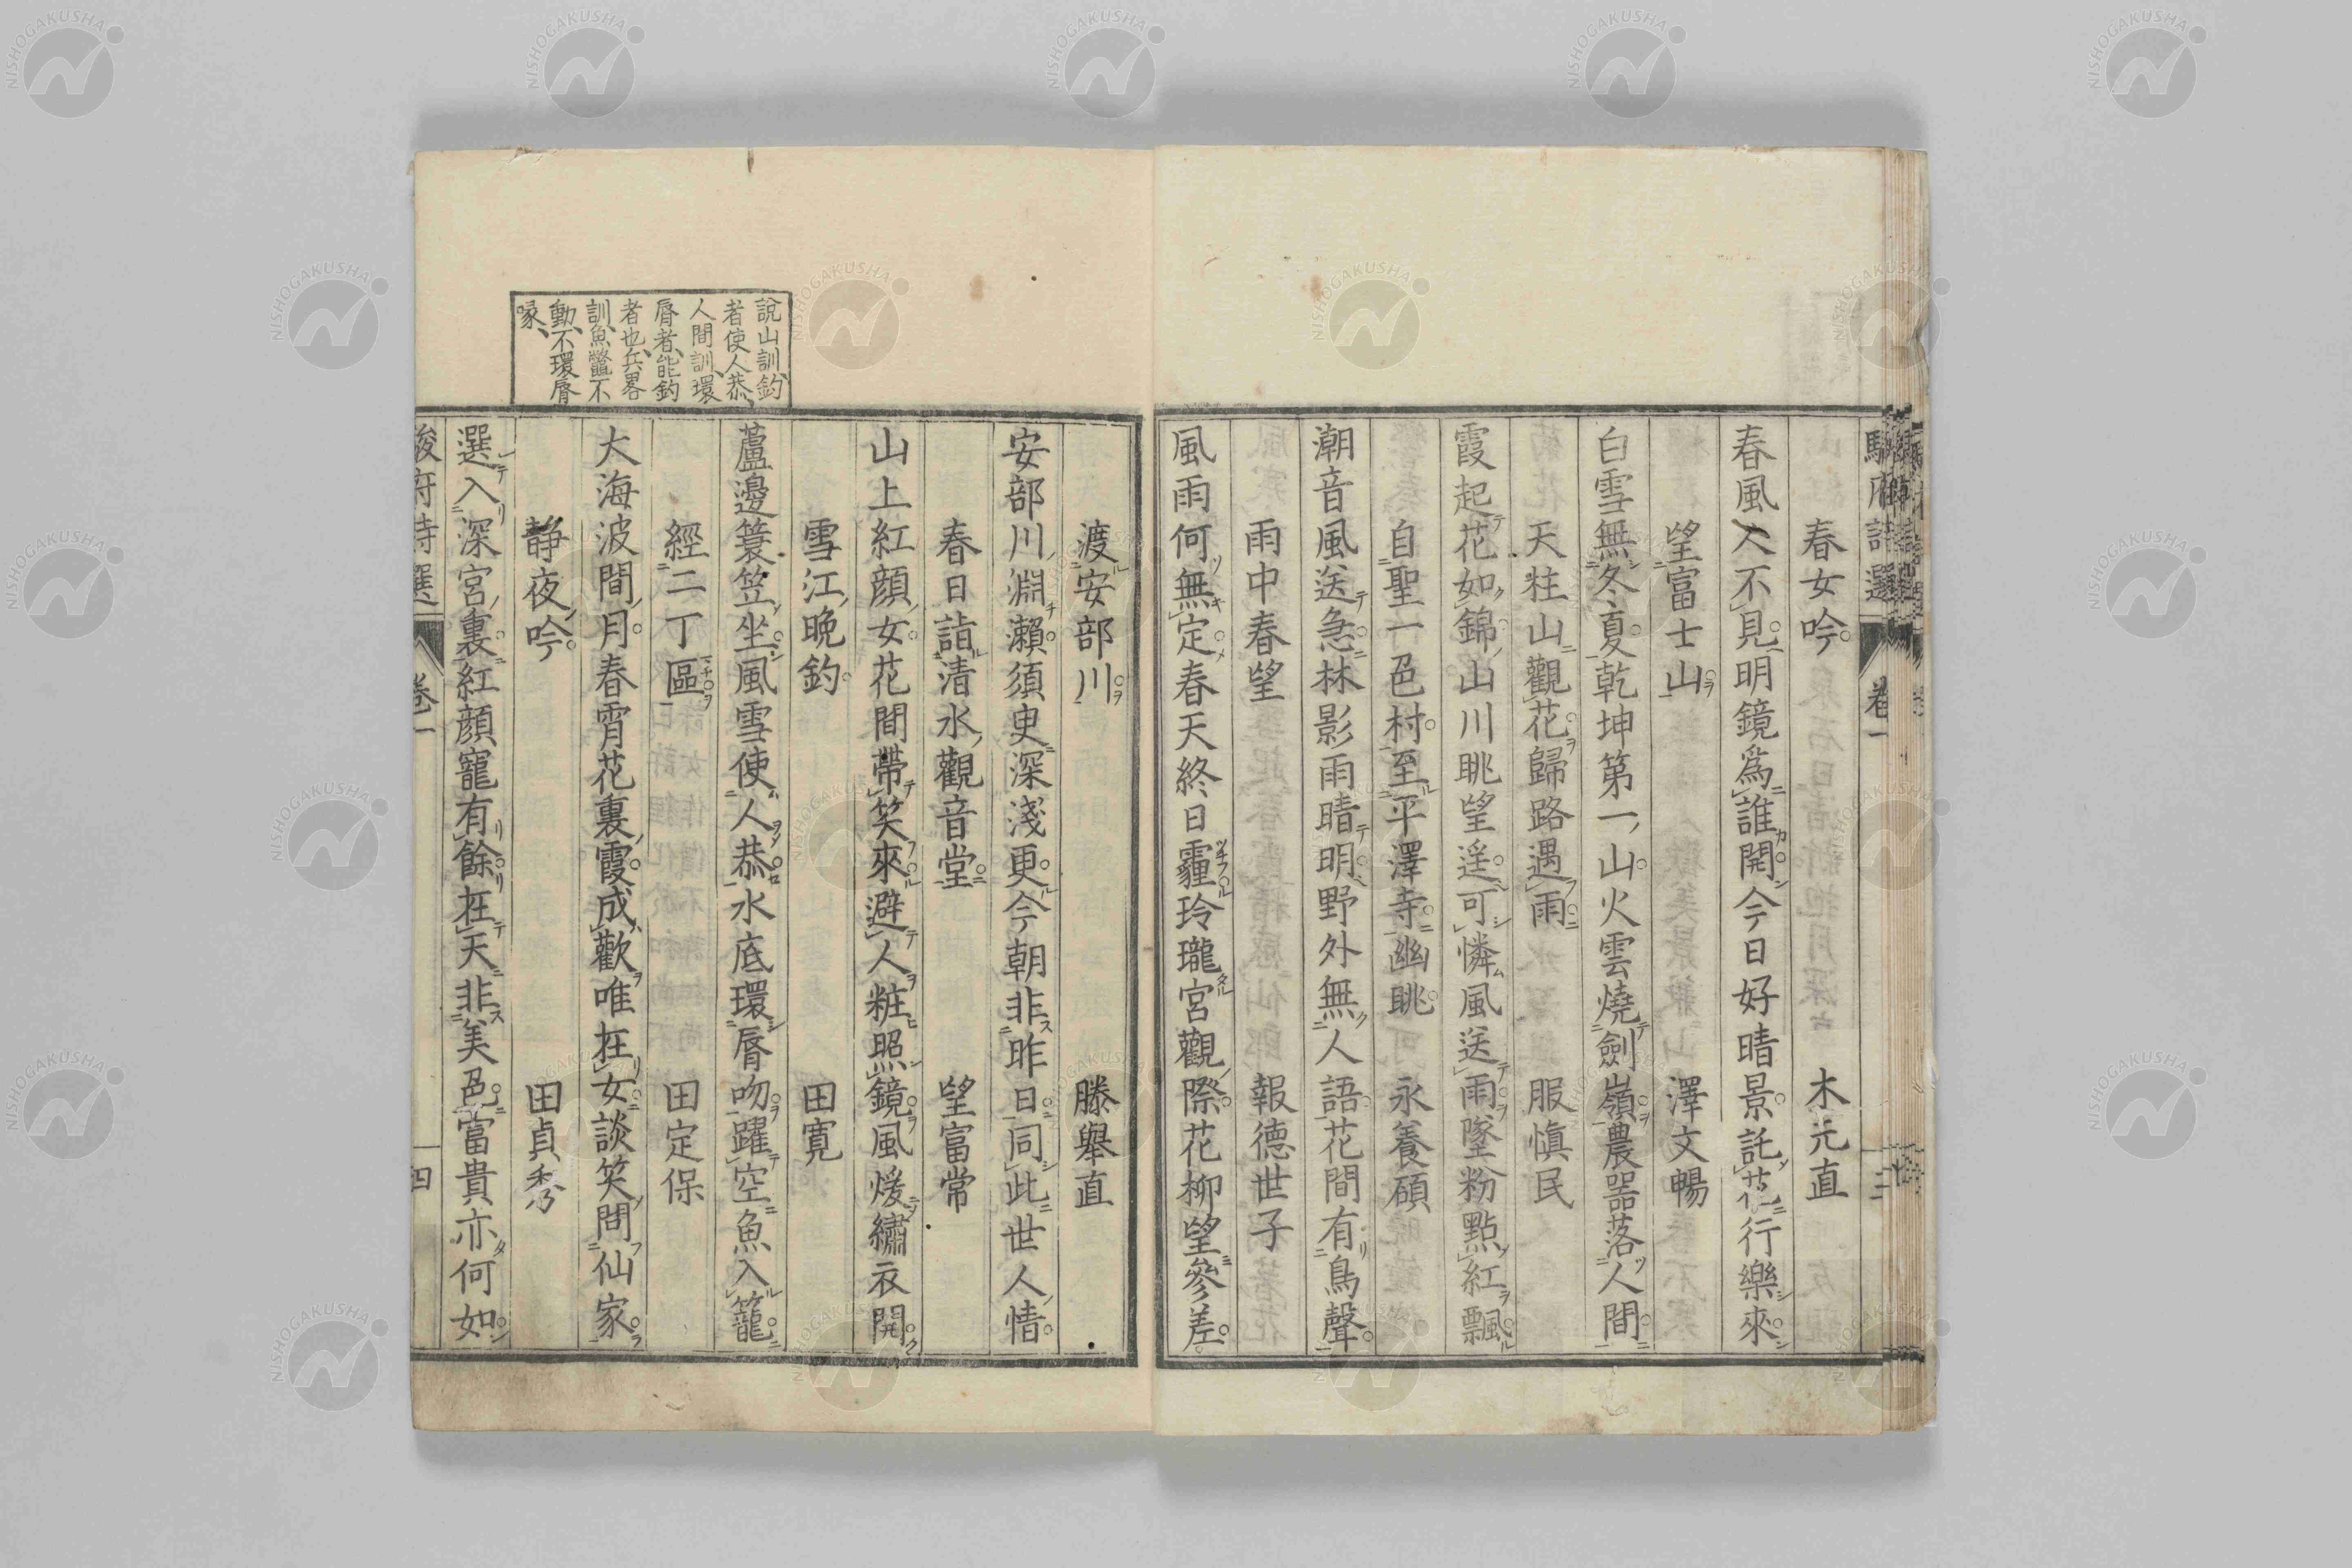 駿府詩選 卷一
春女吟 木元直
春風久不見明鏡爲誰開今日好晴景託花行樂來
望富士山 澤文暢
白雪無冬夏乾坤第一山火雲燒劍嶺農器落人間
天柱山觀花歸路遇雨 服愼民
霞起花如錦山川眺望遙可憐風送雨墜粉點紅飄
自聖一色村至平澤寺幽眺 永養碩
潮音風送急林影雨晴明野外無人語花間有鳥聲
雨中春望 報德世子
風雨何無定春天終日霾玲瓏宮觀際花柳望參差
渡安部川 滕舉直
安部川淵瀨須臾深淺更今朝非昨日同此世人情
春日詣清水觀音堂 望富常
山上紅顏女花間帶笑來避人粧照鏡風煖繡衣開
雪江晚釣 田寛
蘆邊簑笠坐風雪使人恭水底環脣吻躍空魚入籠
經二丁區 田定保
大海波間月春宵花裏霞成歡唯在女談笑問仙家
靜夜吟 田貞秀
選入深宮裏紅顏寵有餘在天非美色富貴亦何如
駿府詩選 卷一 四
說山訓釣
者使人恭
人間訓環
脣者能釣
者也兵畧
訓魚鼈不
動不環脣
喙
NISHOGAKUSHA